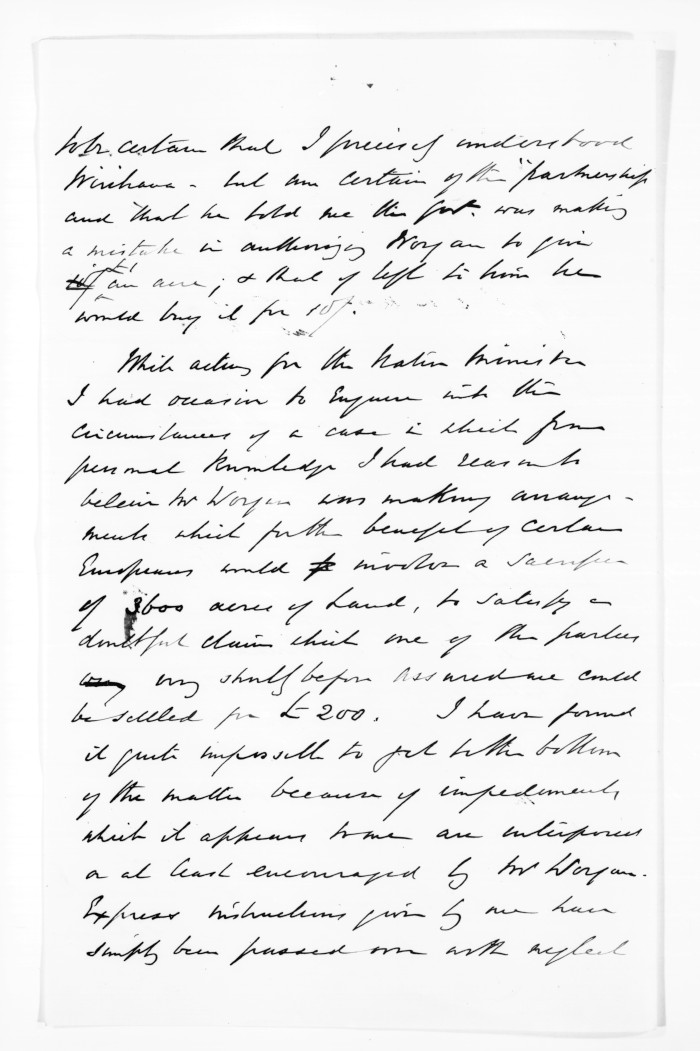 to be certain that I precisely understood
Wirihana - but am certain of the "partnership
and that he told me the Govt. was making
a mistake in authorizing Worgan to give
an acre; & that if left to him he
would buy it for 10/-.
While acting for the Native Minister
I had occasion to Enquire into the
circumstances of a case in which from
personal knowledge I had reason to
believe Mr Worgan was making arrange-
ments which for the benefit of certain
Europeans would involve a Sacrifice
of 3600 acres of Land, to satisfy a
doubtful claim which one of the parties
very shortly before Assured me could
be settled for £200. I have found
it quite impossible to get to the bottom
of the matter because of impediments
which it appears to me are interposed
or at least encouraged by Mr Worgan.
Express instructions given by me have
simply been passed over with neglect